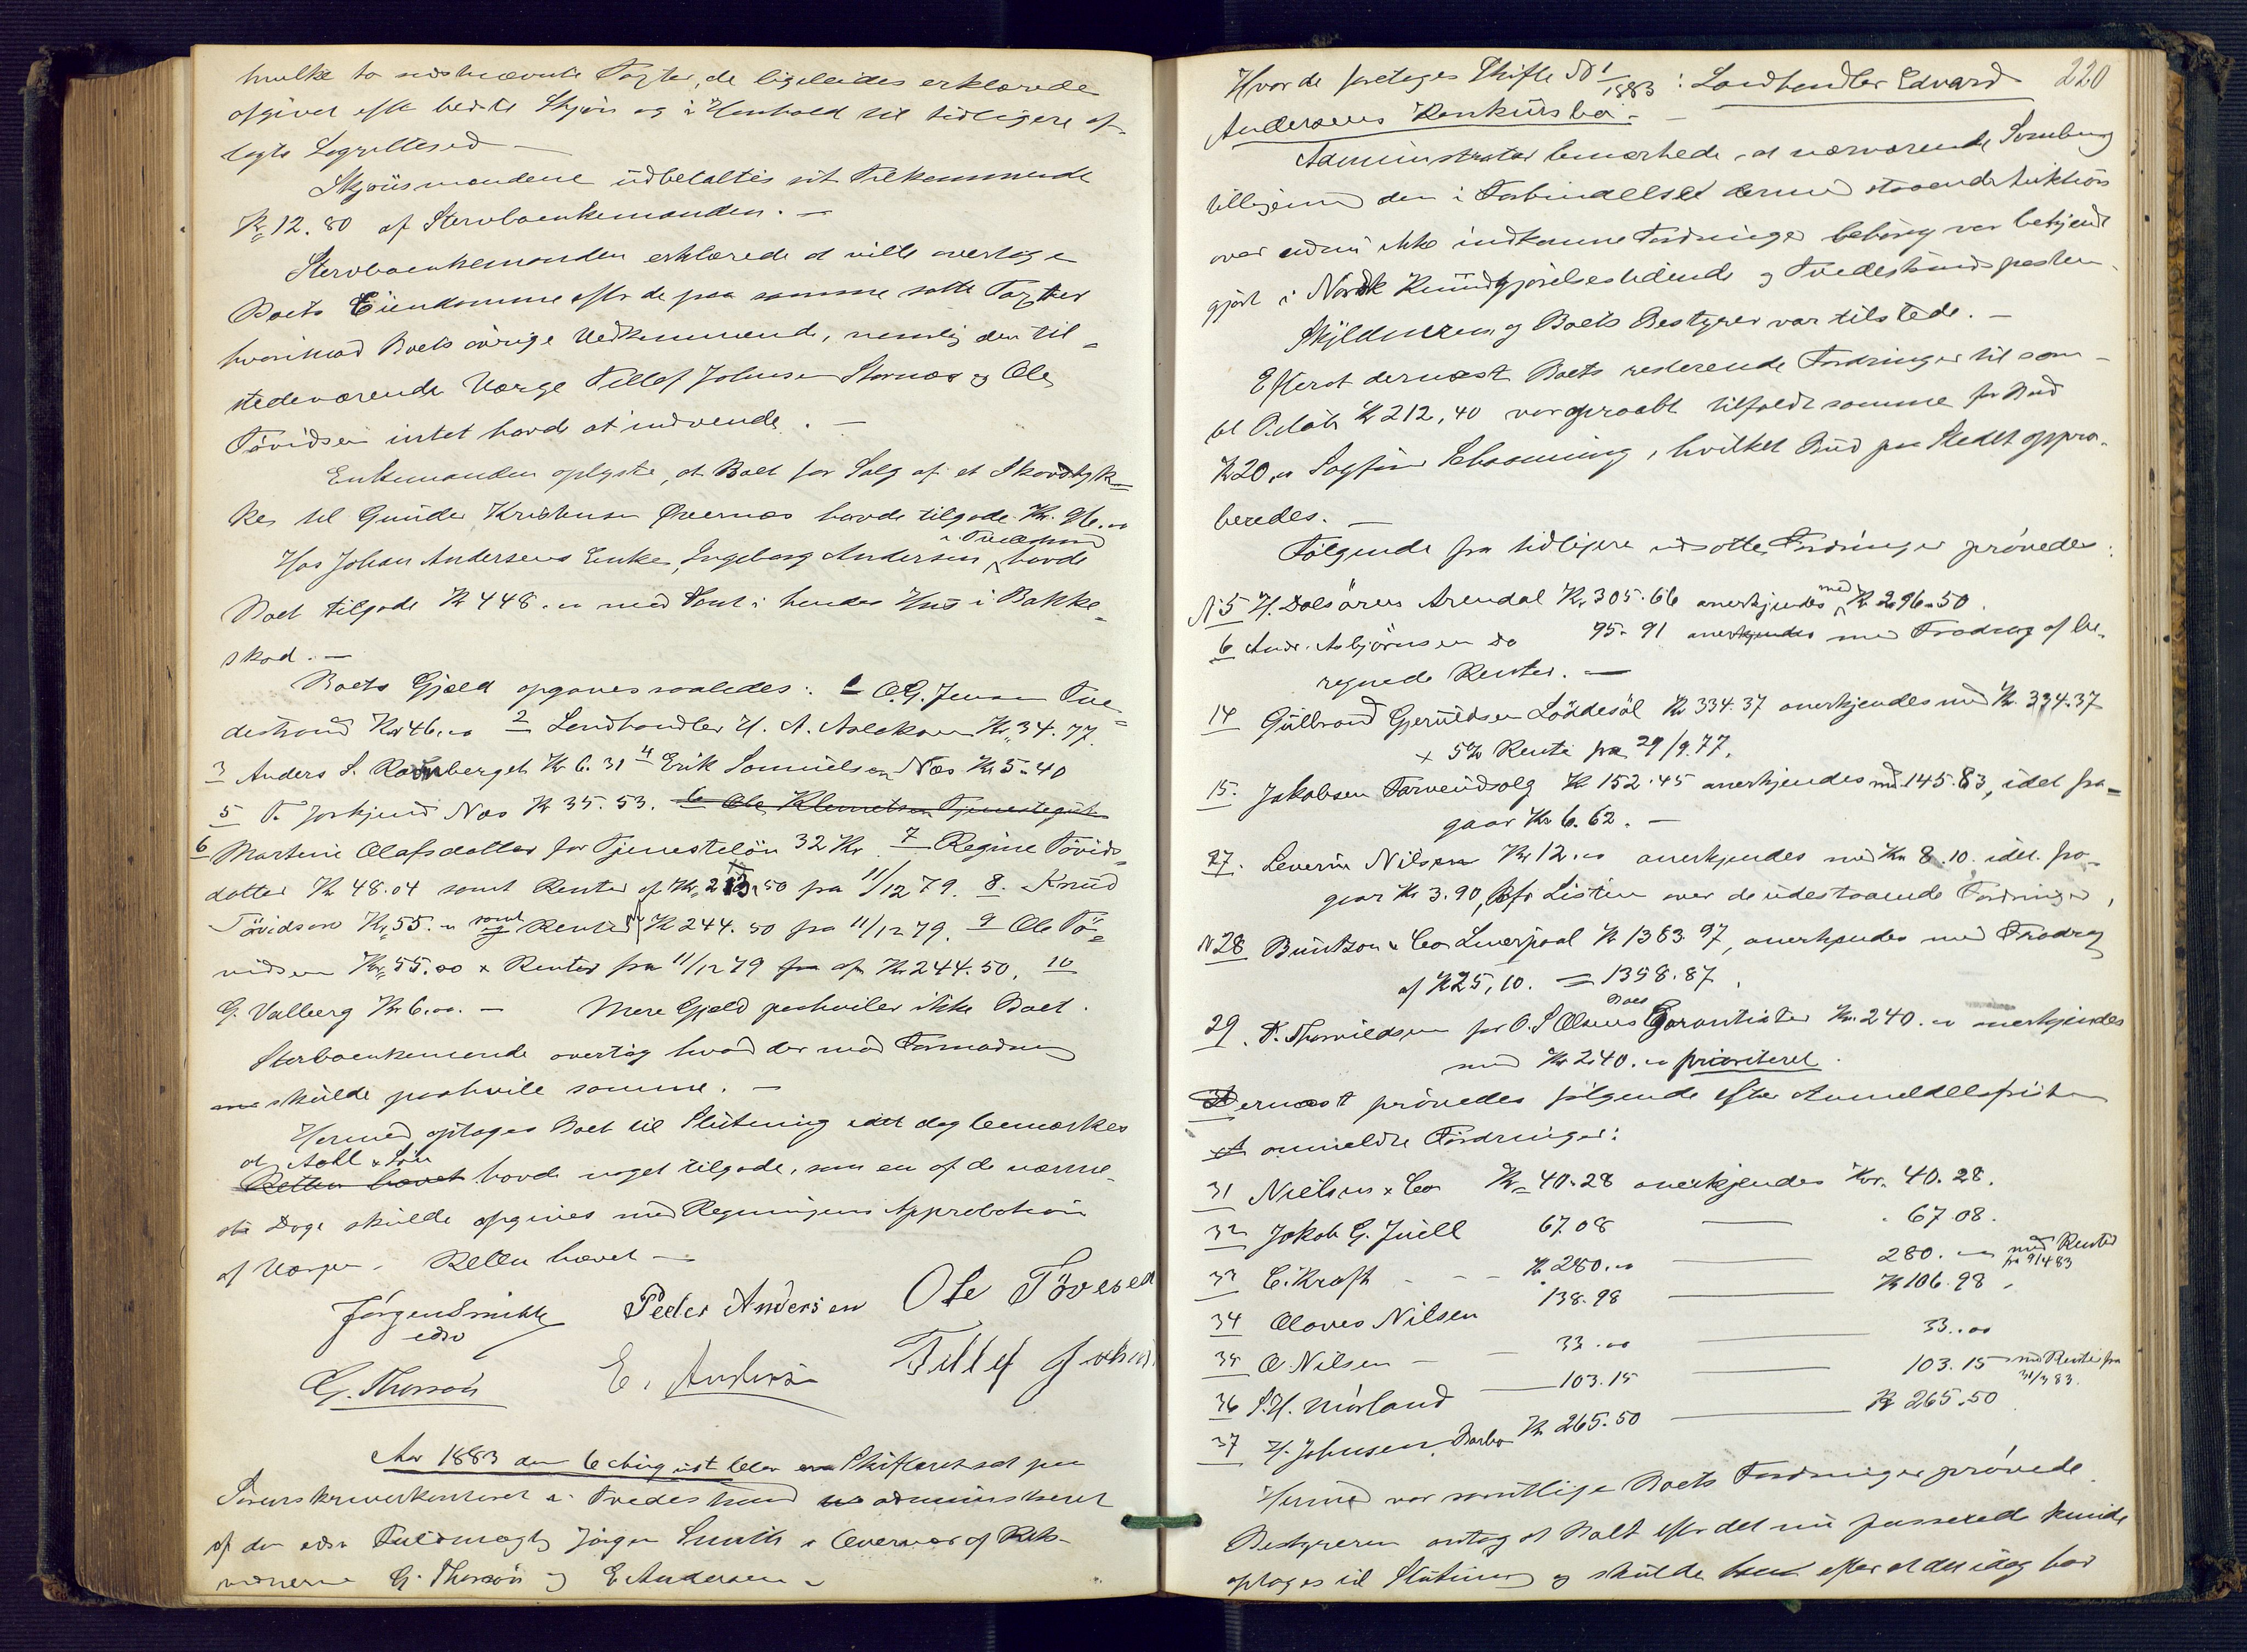 hvilke to sidstnævnte Taxter, de ligeledes erklærede
afgivet efter bedste Skjøn og i Henhold til tidligere af-
lagte Lagrettesed —
Skjönsmændene udbetaltes sit Tilkommende
Kr. 12.80 af Stervboenkemanden. —
Stervboenkemanden erklærede at ville overtage
Boets Eiendomme efter de paa samme satte Taxter
hvorimod Boets övrige Vedkommende, nemlig den til-
stedeværende Værge Tellef Johnsen og Ole
Tövidsen intet havde at indvende. —
Enkemanden oplyste, at Boet for Salg af et Skovstyk-
ke til Gunder Kristensen havde tilgode Kr. 96.00
Hos Johan Andersens Enke, Ingeborg Andersen i Tvedestrand havde
Boet tilgode Kr 448.00 med Pant i hendes Hus i Bakke-
skod. —
Boets Gjæld opgaves saaledes: 1 O.G. Jensen Tve-
destrand Kr 46.00 2 Landhandler H. A. Kr. 34.77.
3 Anders S. Kr 6.31 4 Erik Samuelsen Næs Kr 5.40
5 T. Næs Kr 35.53. 6 Ole Klemetsen
6 Martine Olafsdatter for Tjenestelön 32 Kr. 7 Regine Tövids-
datter Kr 48.04 samt Renter af Kr. 213.50 fra 11/12 79. 8. Knud
Tövidsen Kr. 55.00 samt Renter af Kr 244.50 fra 11/12 79. 9 Ole Tö-
vidsen Kr. 55.00 + Renter fra 11/12 79 fra af Kr. 244.50. 10
G. Valberg Kr. 6.00. — Mere Gjæld paahviler ikke Boet.
Sterboenkemanden overtog hvad der mod Formodning
skulde paahvile samme. —
Hermed optoges Boet til Slutning idet dog bemærkes
at Aall & Sön
Retten hævet havde noget tilgode, som en af de nærme-
ste Dage skulde opgives med Regningens Approbation
af Værgen. Retten hævet —
Jörgen Smith Peder Andersen Ole Tövesen
edsv
G. Thorsön E. Andersen Tellef Johns
Aar 1883 den 6 August blev Skifteret sat paa
Sorenskriverkontoret i Tvedestrand administreret
af den edsv. Fuldmægtig Jörgen Smith i Overvær af Rets-
vidnerne G. Thorsön og E Andersen.
220
Hvorda foretoges Skifte No 1/1883: Landhandler Edvard
Andersens Konkursbo. —
Administrator bemærkede, at nærværende Samling
tilligemed den i Forbindelse dermed staaende Auktion
over endnu ikke indkomne Fordringer behörig var bekjendt-
gjort i Norsk Kundgjörelsestidende og Tvedestrandsposten.
Skyldneren og Boets Bestyrer var tilstede. —
Efterat dernæst Boets resterende Fordringer til sam-
let Belöb Kr 212,40 var opraabt tilfaldt samme for Bud
Kr 20.00 Sagförer Schaanning, hvilket Bud paa Stedet appro-
beredes. —
Fölgende fra tidligere udsatte Fordringer prövedes:
No 5 H. Arendal Kr. 305.66 anerkjendes med Kr 296.50.
6 Andr. Asbjörnsen do 95.91 anerkjendes med Fradrag af be-
regnede Renter. —
14 Gulbrand Gjeruldsen Kr 334.37 anerkjendes med Kr. 334.37
+ 5% Rente fra 29/9.77.
15. Jakobsen Kr 152.45 anerkjendes med 145.83, idet fra-
gaar Kr 6.62. —
27. Severin Nilsen Kr 12.00 anerkjendes med Kr 8.10. idet fra-
gaar Kr 3.90, kfr Listen over de udestaaende Fordringer,
No 28 & Co Liverpool Kr 1383.97, anerkjendes med Fradrag
af Kr 25,10. = 1358.87.
29. T. Thorvildsen for O. S Olsens Boes Garantister Kr. 240.00 anerkjendes
med Kr 240.00 prioriteret.
Dernæst prövedes fölgende efter Anmeldelsfristen
anmeldte Fordringer:
31 Nielsen & Co Kr. 40.28 anerkjendes Kr. 40.28.
32 Jakob G. Juell 67.08 — 67.08.
33 C. Kraft - - - Kr 280.00 — 280.00 med Renter fra 9/4 83
34 Olaves Nilsen 138.98 — Kr 106.98.
35 O. Nilsen — 33.00 — 33.00
36 S. H. Mörland — 103.15 — 103.15 med Renter fra 31/3 83.
37 H. Johnsen, Barbo Kr 265.50 — Kr 265.50
Hermed var samtlige Boets Fordringer prövede.
Bestyreren antog at Boet efter det nu passerede kunde
optages til Slutning og skulde efter at der idag har